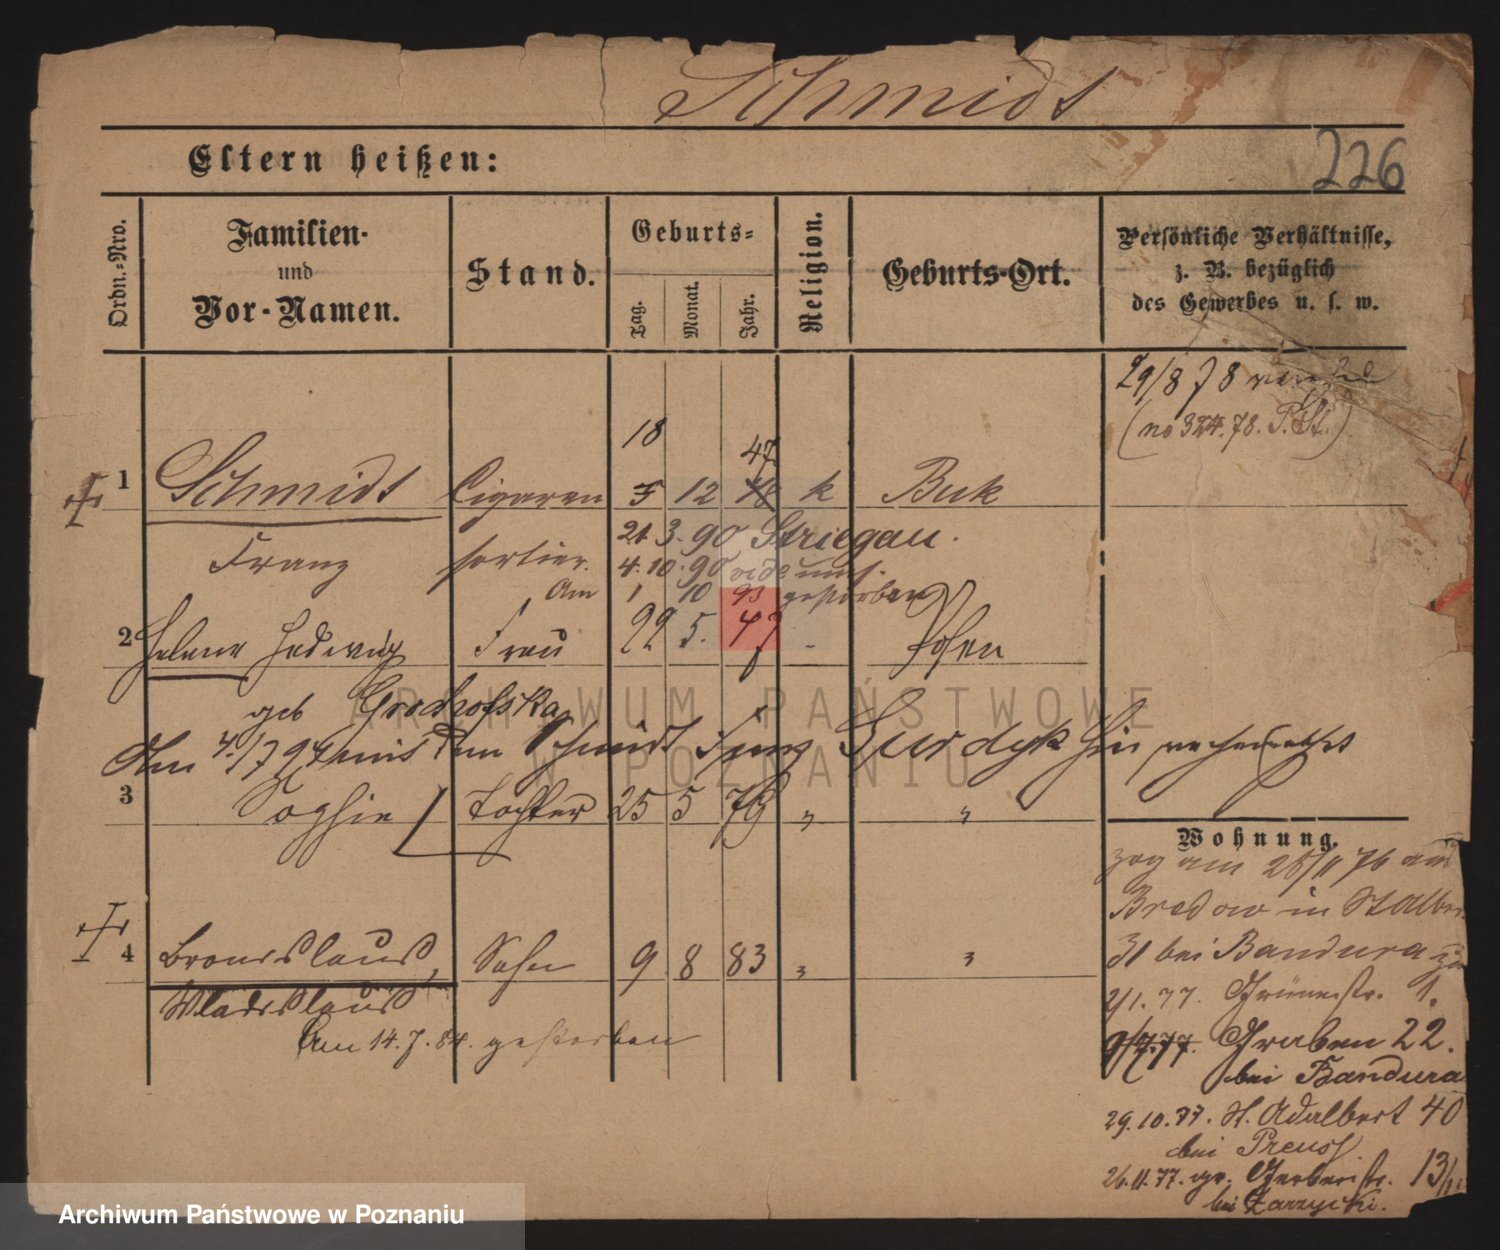 Schmidt
Eltern heißen:
226
Ordn.-Nro.
Familien-
und
Vor-Namen.
Stand.
Geburts-
Tag.
Monat.
Jahr.
Religion.
Geburts-Ort.
Persönliche Verhältnisse,
z. B. bezüglich
des Gewerbes u. s. w.
29/8 78
(no 324.78. P. St.)
18
47
1 Schmidt Cigarren 12 k Buk
Franz sortier. 21 3. 90 Striegau.
4. 10. 90
Am 1 10 93 gestorben
2 Helene Hedwig Frau 22 5. 47 - Posen
geb
Am 4/7 94 mit dem Schmidt Franz hier verheirathet
3 Sophie Tochter 25 5 79 " "
Wohnung.
zog am 28/11 76 aus
Bredow in St Alber
31 bei Bandura zu
2/1. 77. Grünestr. 1.
4 Bronislaus, Sohn 9 8 83 " "
Wladislaus
Am 14. 7. 84. gestorben
9/7.77. Graben 22.
bei Bandura
29. 10. 77. St. Adalbert 40
bei Preuss
26. 11. 77. gr. Gerberstr. 13/
bei Zarzycki.
ARCHIWUM PAŃSTWOWE
W POZNANIU
Archiwum Państwowe w Poznaniu